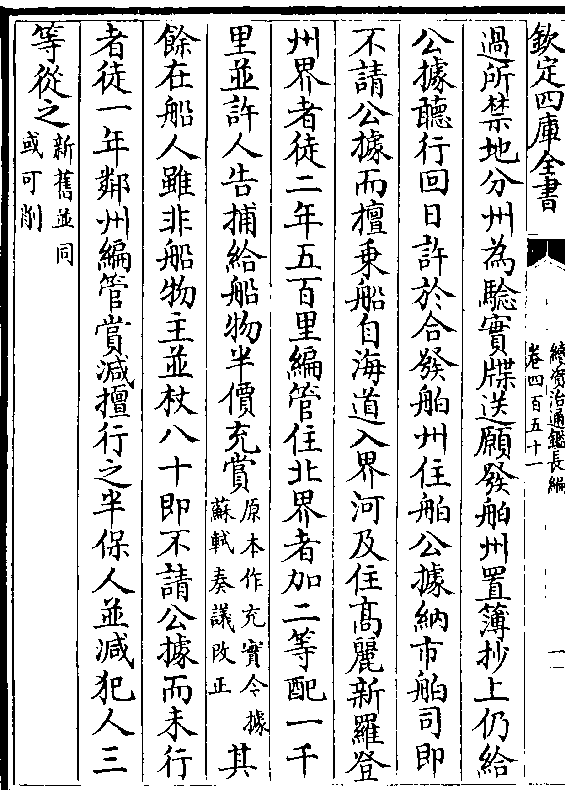 欽定四庫全書
續資治通鑑長編
卷四百五十一
一
過所禁地分州為驗實牒送願發舶州置簿抄上仍給
公據聽行回日許於合發舶州住舶公據納市舶司即
不請公據而擅乗船自海道入界河及往髙麗新羅登
州界者徒二年五百里編管往北界者加二等配一千
里並許人告捕給船物半價充賞原本作充實今據蘇軾奏議改正其
餘在船人雖非船物主並杖八十即不請公據而未行
者徒一年鄰州編管賞減擅行之半保人並減犯人三
等從之新舊並同或可削